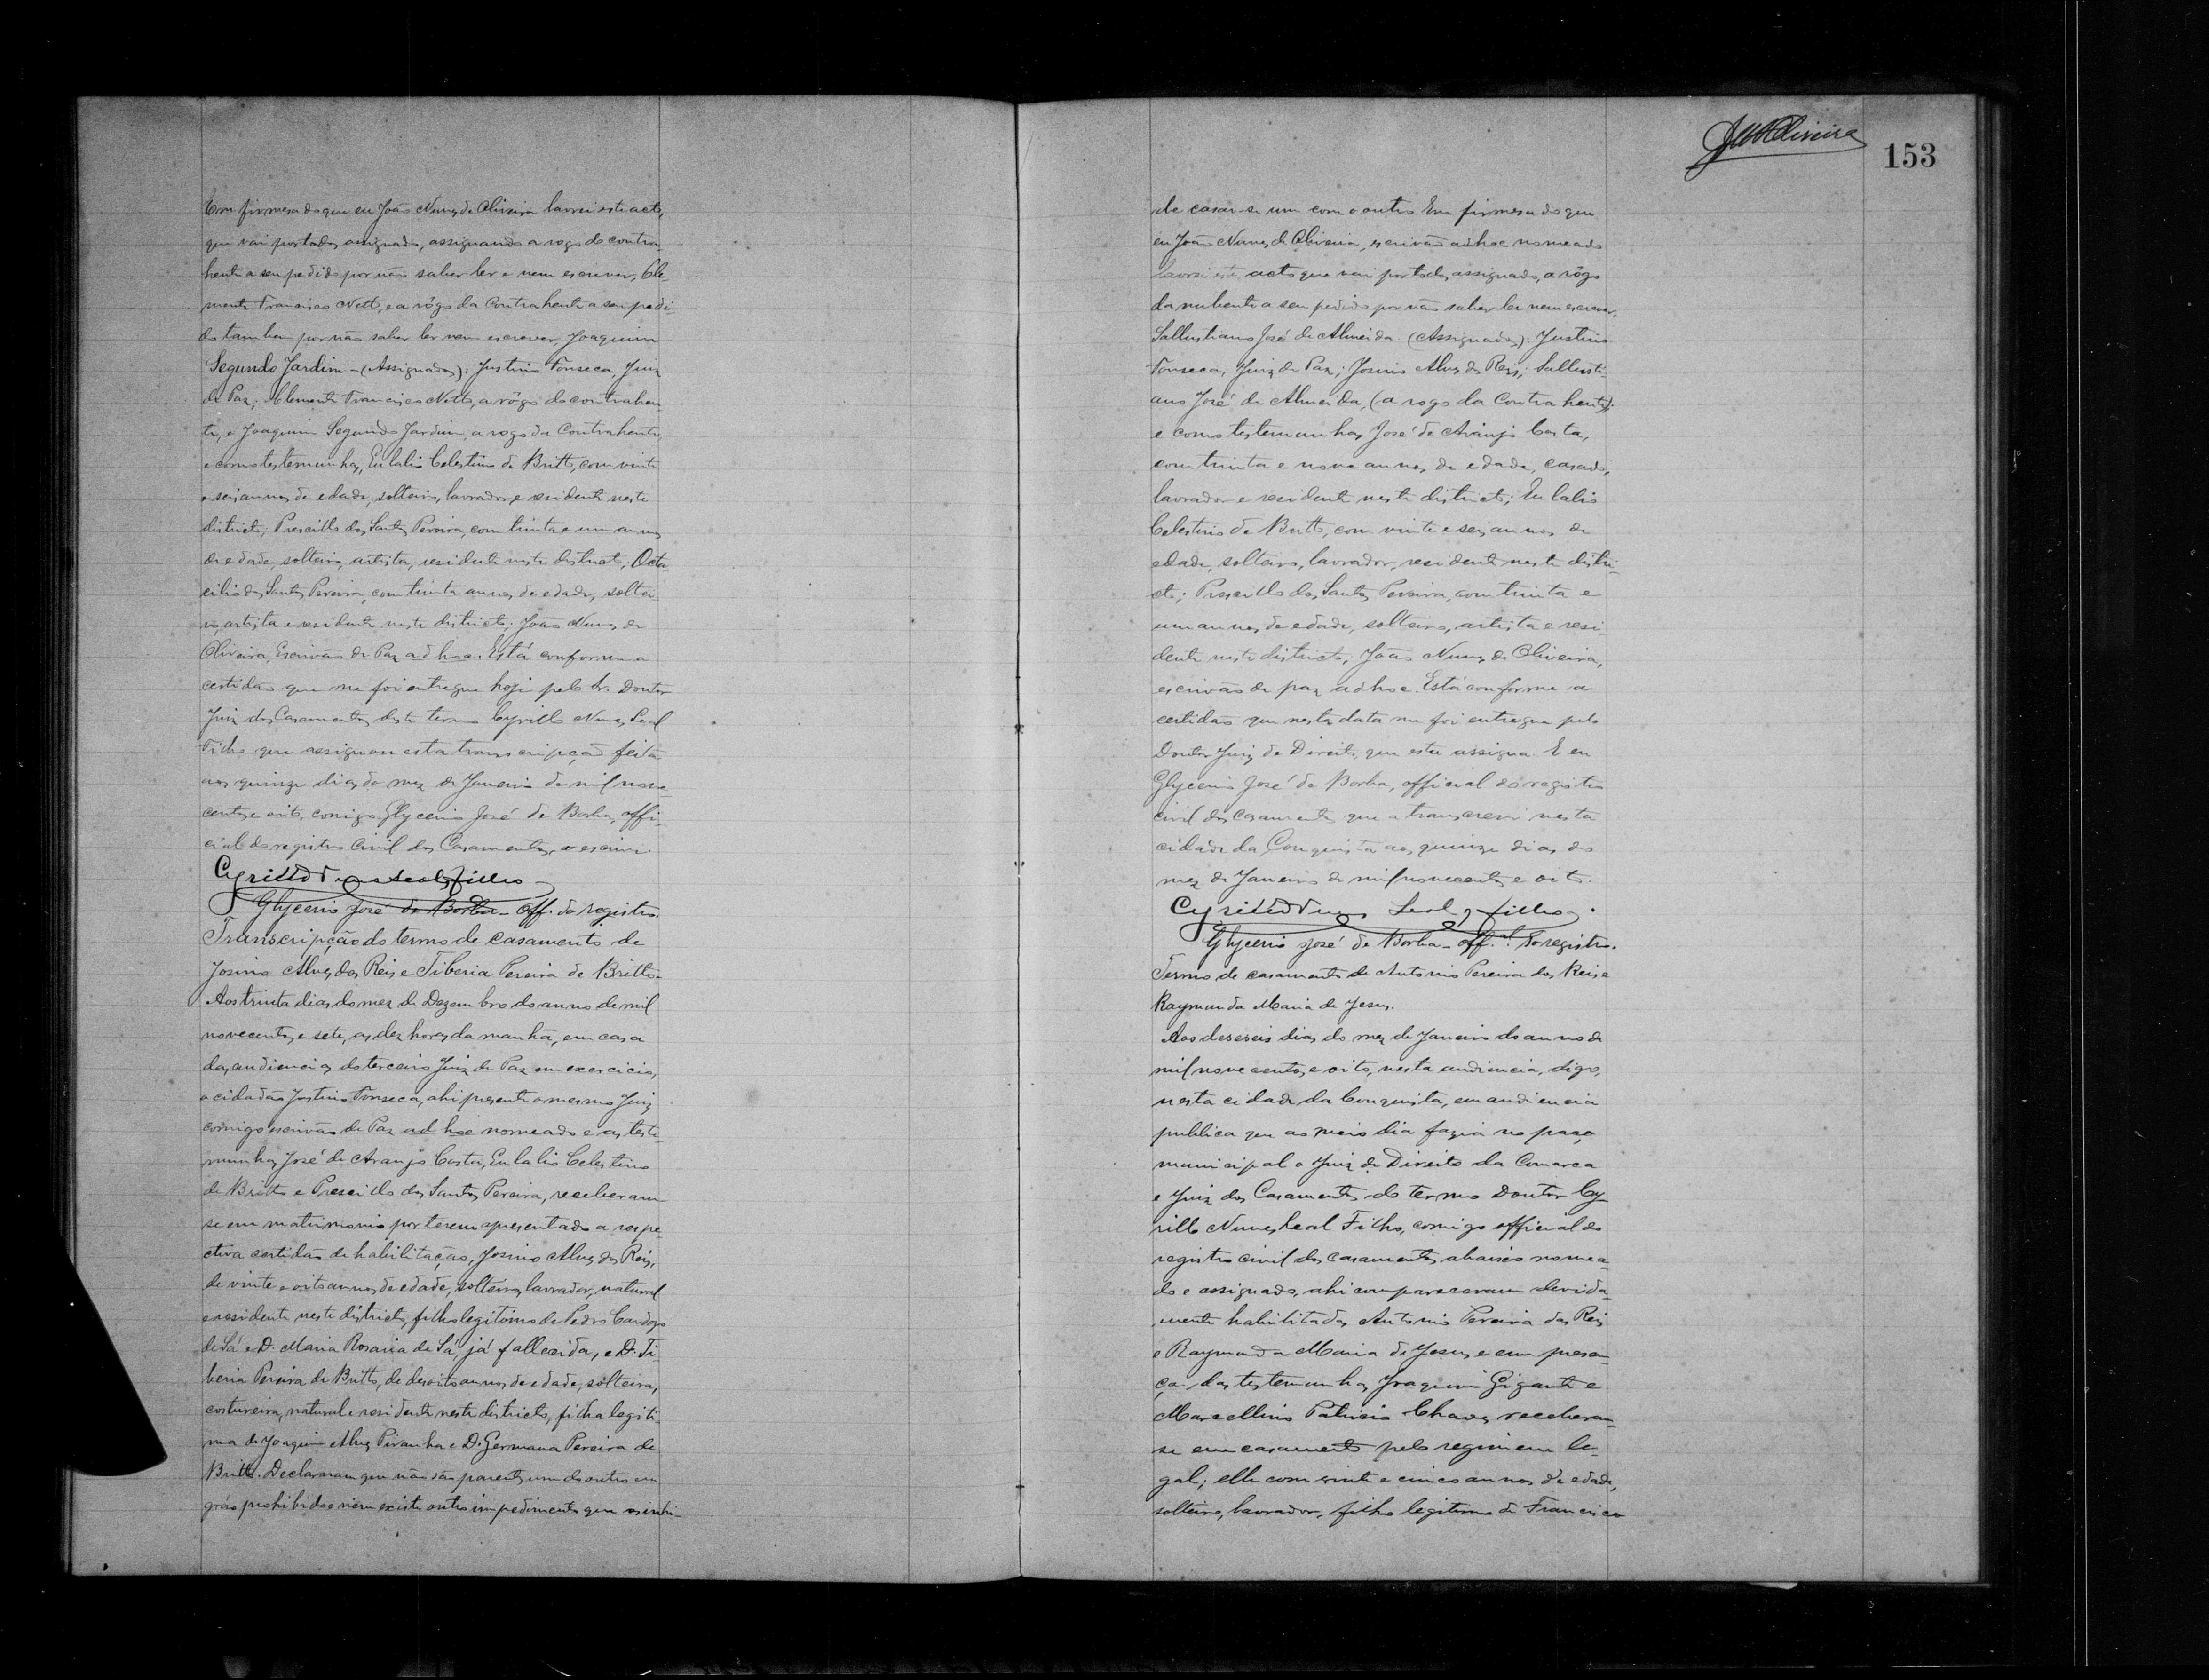 Em firmesa do que eu João Nunes de Oliveira lavrei este acto,
que vai por todos assignado, assignando a rogo do contra
hente a seu pedido por não saber ler e nem escrever, Cle
mente Francisco Netto, e a rôgo da Contrahente a seu pedi
do tambem por não saber ler nem escrever, Joaquim
Segundo Jardim - (Assignados): Justino Fonseca, Juiz
de Paz; Clemente Francisco Netto, a rôgo do contrahen
te, e Joaquim Segundo Jardim, a rogo da Contrahente,
e como testemunhas, Eulalio Celestino de Britto, com vinte
e seis annos de edade, solteiro, lavrador, e residente neste
districto; Prescillo dos Santos Pereira, com trinta e um annos
de edade, solteiro, artista, residente neste districto; Octa
cilio dos Santos Pereira, com trinta annos de edade, soltei
ro, artista e residente neste districto; João Nunes de
Oliveira, Escrivão de Paz ad hoc. Está conforme a
certidão que me foi entregue hoje pelo Sr. Doutor
Juiz dos Casamentos deste termo Cyrillo Nunes Leal
Filho que assignou esta transcripção feita
aos quinze dias do mez de Janeiro de mil nove
centos e oito, comigo Glycerio José de Borba, offi-
cial do registro Civil dos Casamentos, o escrevi.
Cyrillo Nunes Leal, filho
Glycerio José de Borba - off. do registro.
Transcripção do termo de casamento de
Josino Alves dos Reis e Tiberia Pereira de Britto.
Aos trinta dias do mez de Dezembro do anno de mil
novecentos e sete, as dez horas da manhã, em casa
das audiencias do terceiro Juiz de Paz em exercicio,
o cidadão Justino Fonseca, ahi presente o mesmo Juiz
comigo escrivão de Paz ad hoc nomeado e as teste
munhas José de Araujo Costa, Eulalio Celestino
de Britto e Prescillo dos Santos Pereira, receberam
se em matrimonio por terem apresentado a respe
ctiva certidão de habilitação, Josino Alves dos Reis,
de vinte e oito annos de edade, solteiro, lavrador, natural
e residente neste districto, filho legitimo de Pedro Cardoso
de Sá e D. Maria Rosaria de Sá, já fallecida, e D. Ti-
beria Pereira de Britto, de desoito annos de edade, solteira,
costureira, natural e residente neste districto, filha legiti-
ma de Joaquim Alves Piranha e D. Germana Pereira de
Britto. Declararam que não são parentes um do outro em
gráo prohibido e nem existe outro impedimento que os inhi-
153
de casar-se um com o outro. Em firmesa do que
eu João Nunes de Oliveira, escrivão ad hoc nomeado
lavrei este acto que vai por todos assignado, a rôgo
da nubente a seu pedido por não saber ler nem escrever,
Sallustiano José de Almeida. (Assignados): Justino
Fonseca, Juiz de Paz; Josino Alves dos Reis; Sallusti-
ano José de Almeida, (a rogo da Contrahente);
e como testemunhas, José de Araujo Costa,
com trinta e nove annos de edade, casado,
lavrador e residente neste districto; Eulalio
Celestino de Britto, com vinte e seis annos de
edade, solteiro, lavrador, residente neste distri-
cto; Prescillo dos Santos Pereira, com trinta e
um annos de edade, solteiro, artista e resi
dente neste districto; João Nunes de Oliveira,
escrivão de paz ad hoc. Está conforme a
certidão que nesta data me foi entregue pelo
Doutor Juiz de Direito, que esta assigna. E eu
Glycerio José de Borba, official do registro
civil dos Casamentos que a transcrevi nesta
cidade da Conquista aos quinze dias do
mez de Janeiro de mil novecentos e oito.
Cyrillo Nunes Leal, filho.
Glycerio José de Borba - off.al do registro.
Termo de casamento de Antonio Pereira dos Reis e
Raymunda Maria de Jesus.
Aos deseseis dias do mez de Janeiro do anno de
mil novecentos e oito, nesta audiencia, digo,
nesta cidade da Conquista, em audiencia
publica que ao meio dia fazia no paço
municipal o Juiz de Direito da Comarca
e Juiz dos Casamentos do termo Doutor Cy
rillo Nunes Leal Filho, comigo official do
registro civil dos casamentos, abaixo nomea-
do e assignado, ahi compareceram devida-
mente habilitados Antonio Pereira dos Reis
e Raymunda Maria de Jesus, e em presen-
ça das testemunhas Joaquim Gigante e
Marcellino Patricio Chaves receberam-
se em casamento pelo regimem le-
gal; elle com vinte e cinco annos de edade,
solteiro, lavrador, filho legitimo de Francisco